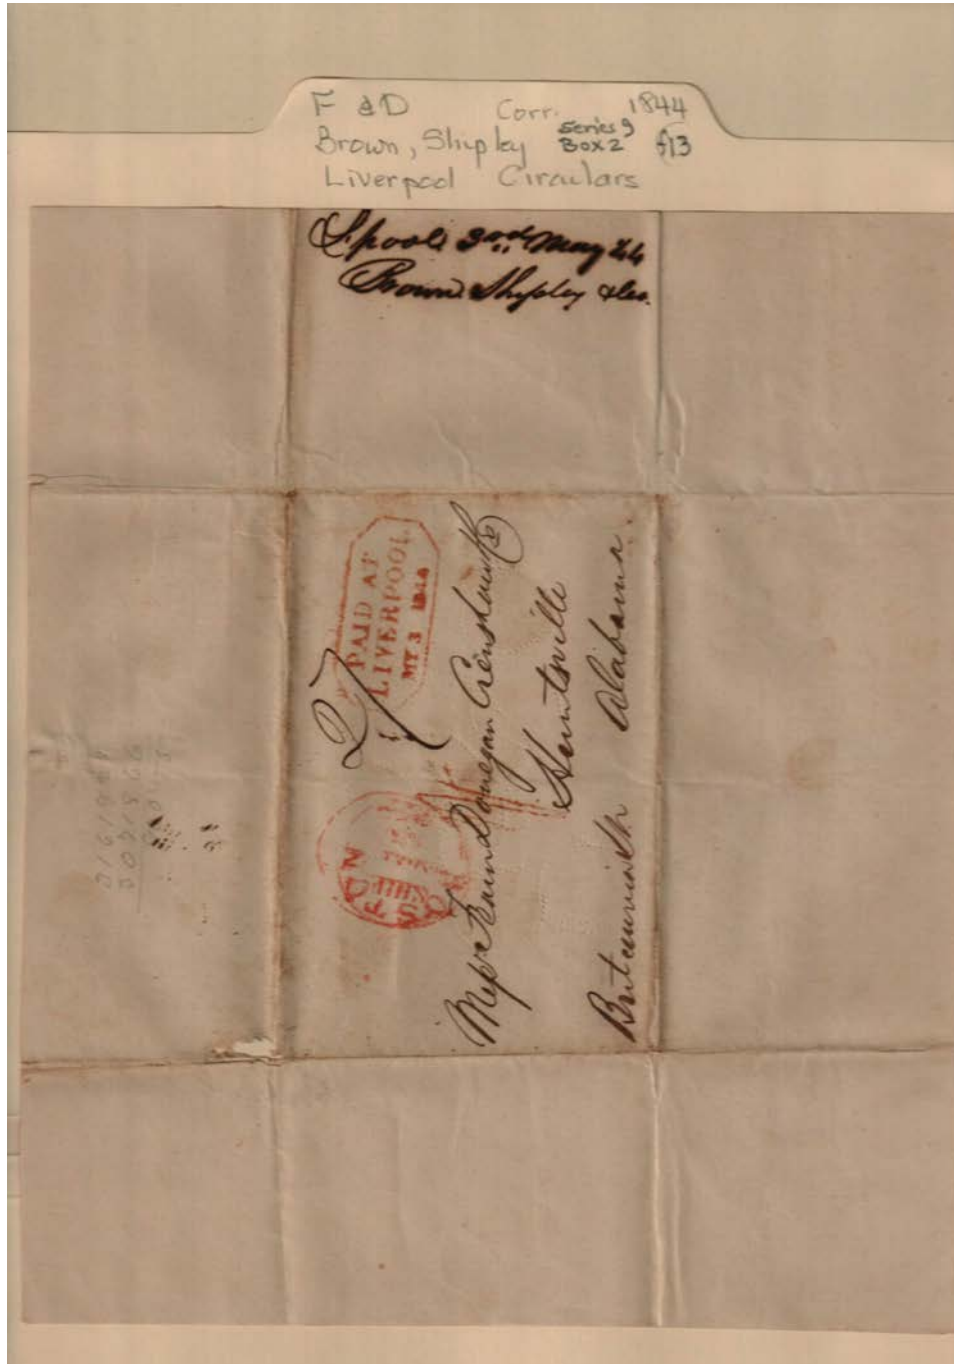 F & D Corr. 1844
Brown, Shipley Series 9 Box 2 f13
Liverpool Circulars
Lpool 3rd May 44
Brown Shipley & Co.
PAID AT
LIVERPOOL
MY 3 1844
BOSTON
SHIP
Messrs Donegan Crenshaw & Co
Huntsville
Alabama